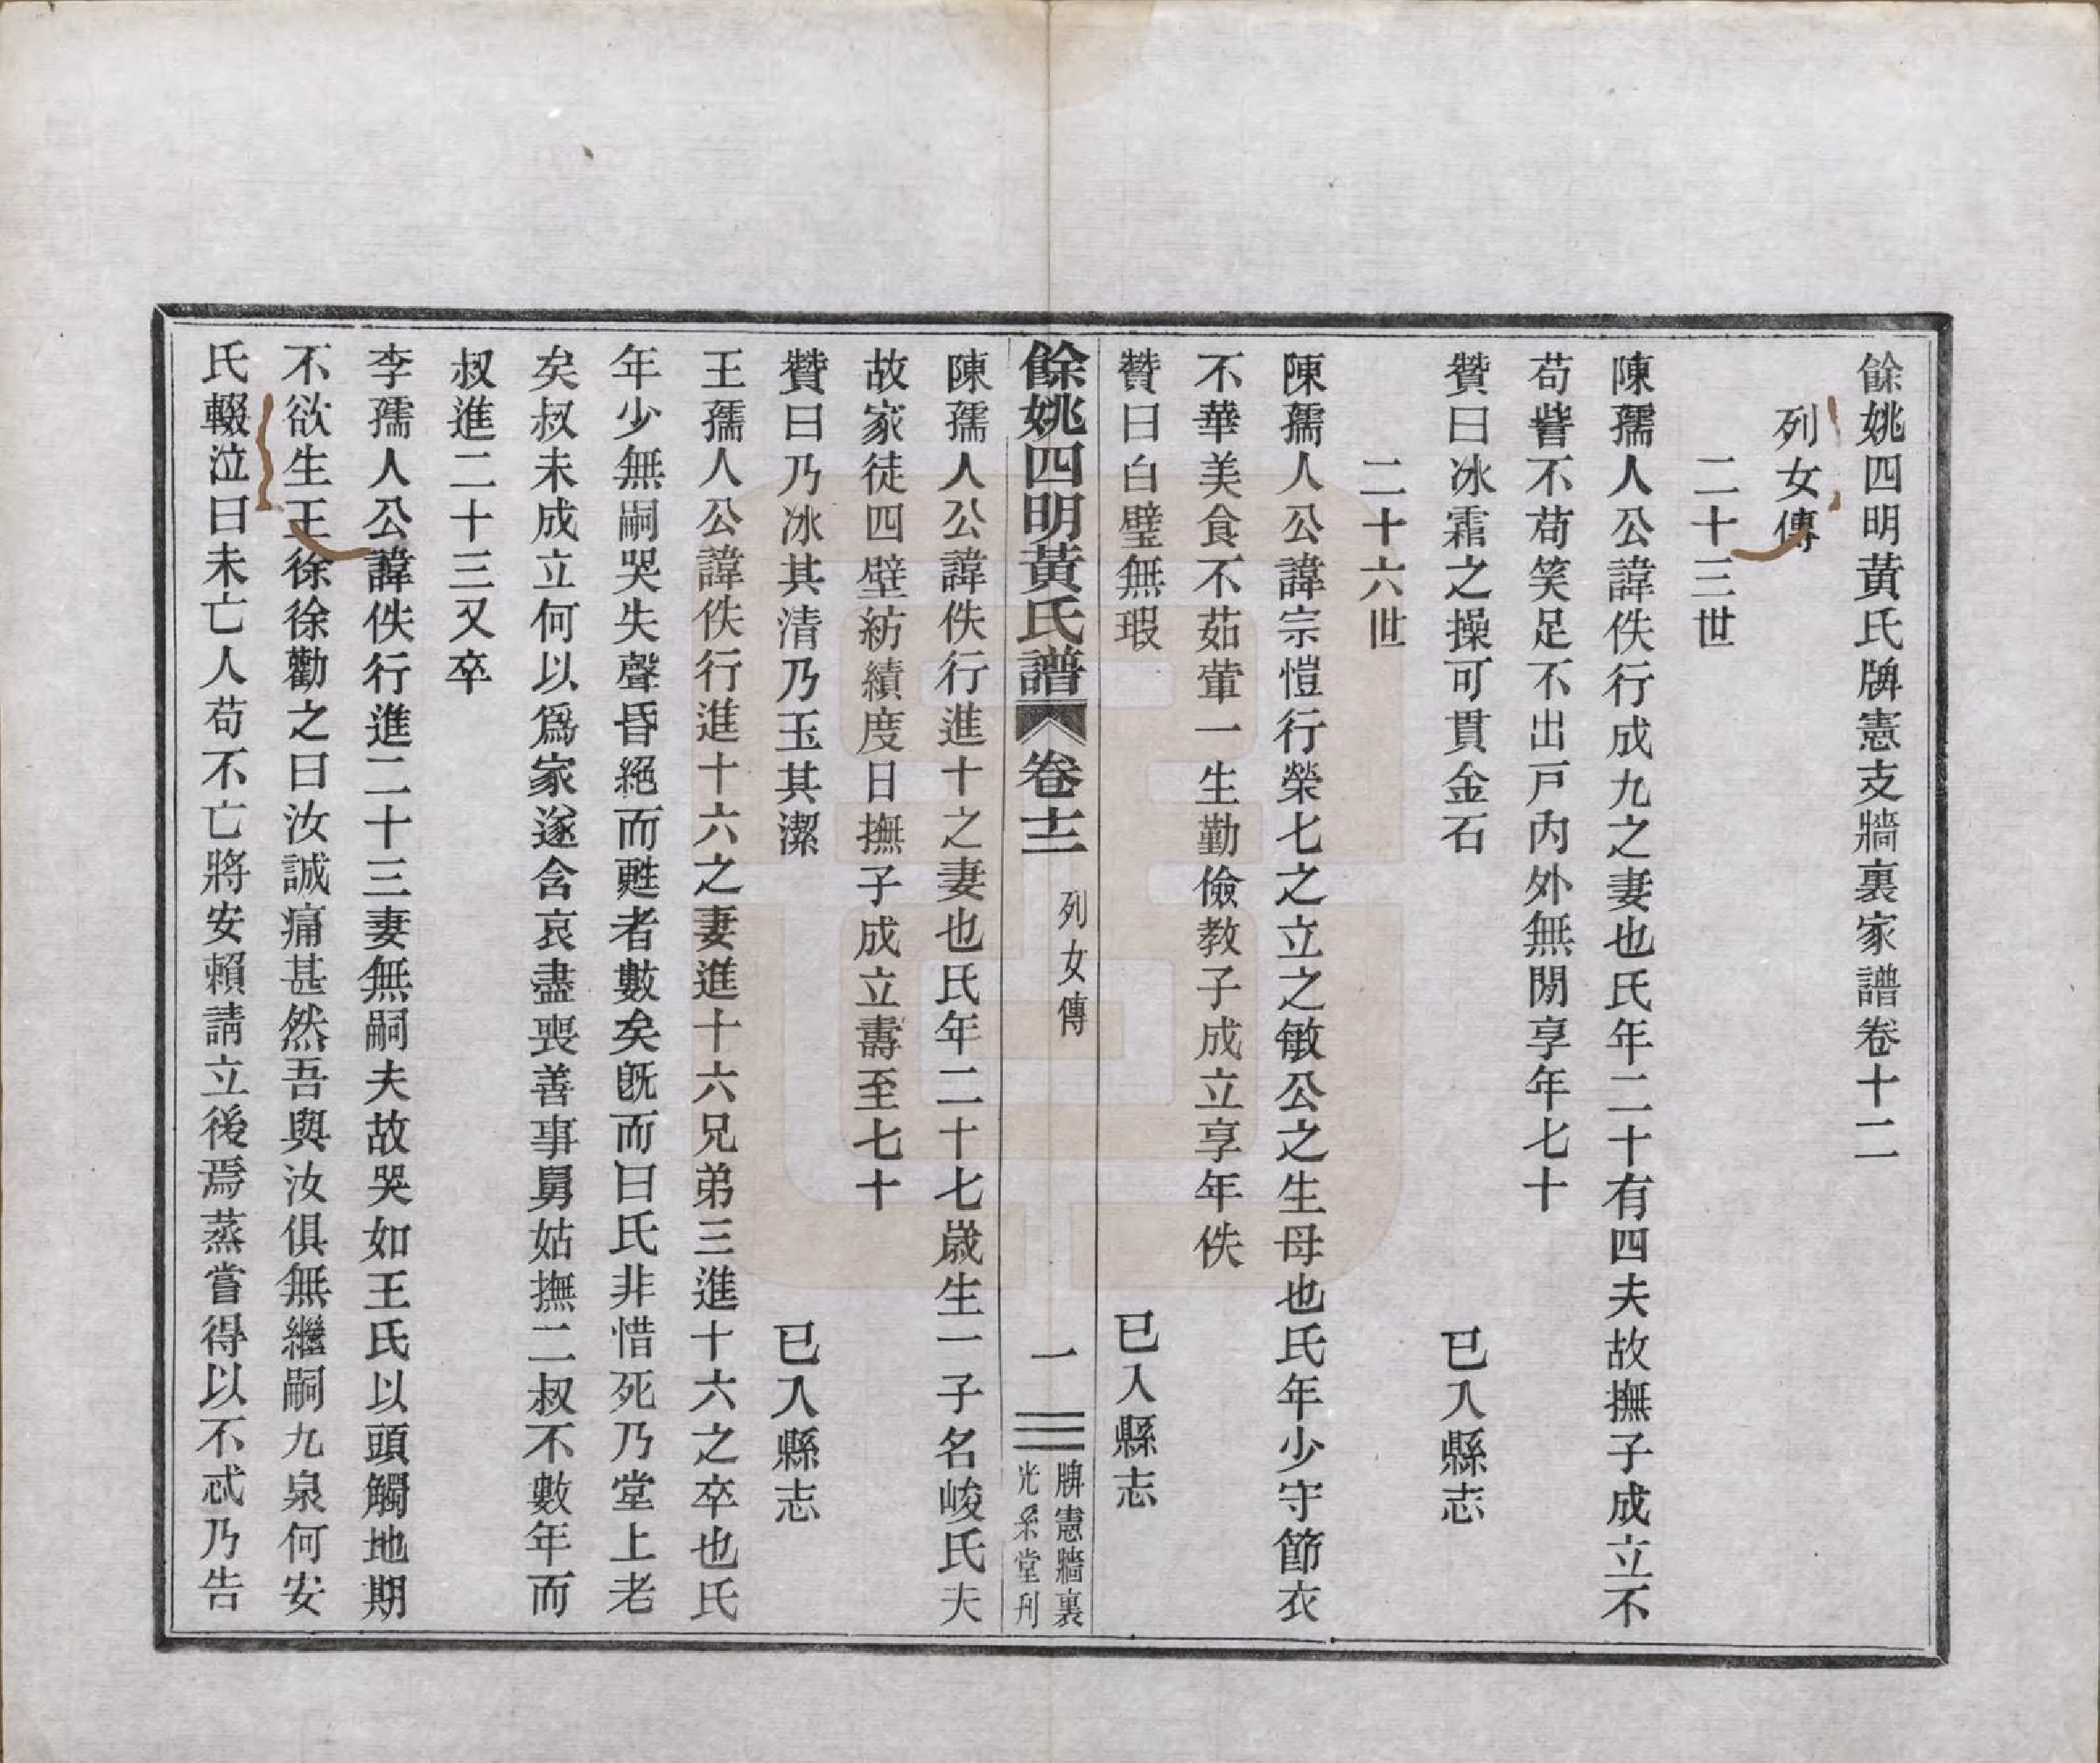 餘姚四明黃氏牌憲支牆裏家譜卷十二
列女傳
二十三世
陳孺人公諱佚行成九之妻也氏年二十有四夫故撫子成立不
苟訾不苟笑足不出戸內外無閒享年七十
贊曰冰霜之操可貫金石　已入縣志
二十六世
陳孺人公諱宗愷行榮七之立之敏公之生母也氏年少守節衣
不華美食不茹葷一生勤儉教子成立享年佚
贊曰白璧無瑕　已入縣志
餘姚四明黃氏譜　卷十二　列女傳　一　牌憲牆裏　光釆堂刋
陳孺人公諱佚行進十之妻也氏年二十七歲生一子名峻氏夫
故家徒四壁紡績度日撫子成立壽至七十
贊曰乃冰其清乃玉其潔　已入縣志
王孺人公諱佚行進十六之妻進十六兄弟三進十六之卒也氏
年少無嗣哭失聲昏絕而甦者數矣旣而曰氏非惜死乃堂上老
矣叔未成立何以爲家遂含哀盡喪善事舅姑撫二叔不數年而
叔進二十三又卒
李孺人公諱佚行進二十三妻無嗣夫故哭如王氏以頭觸地期
不欲生王徐徐勸之曰汝誠痛甚然吾與汝俱無繼嗣九泉何安
氏輟泣曰未亡人苟不亡將安賴請立後焉蒸嘗得以不忒乃告